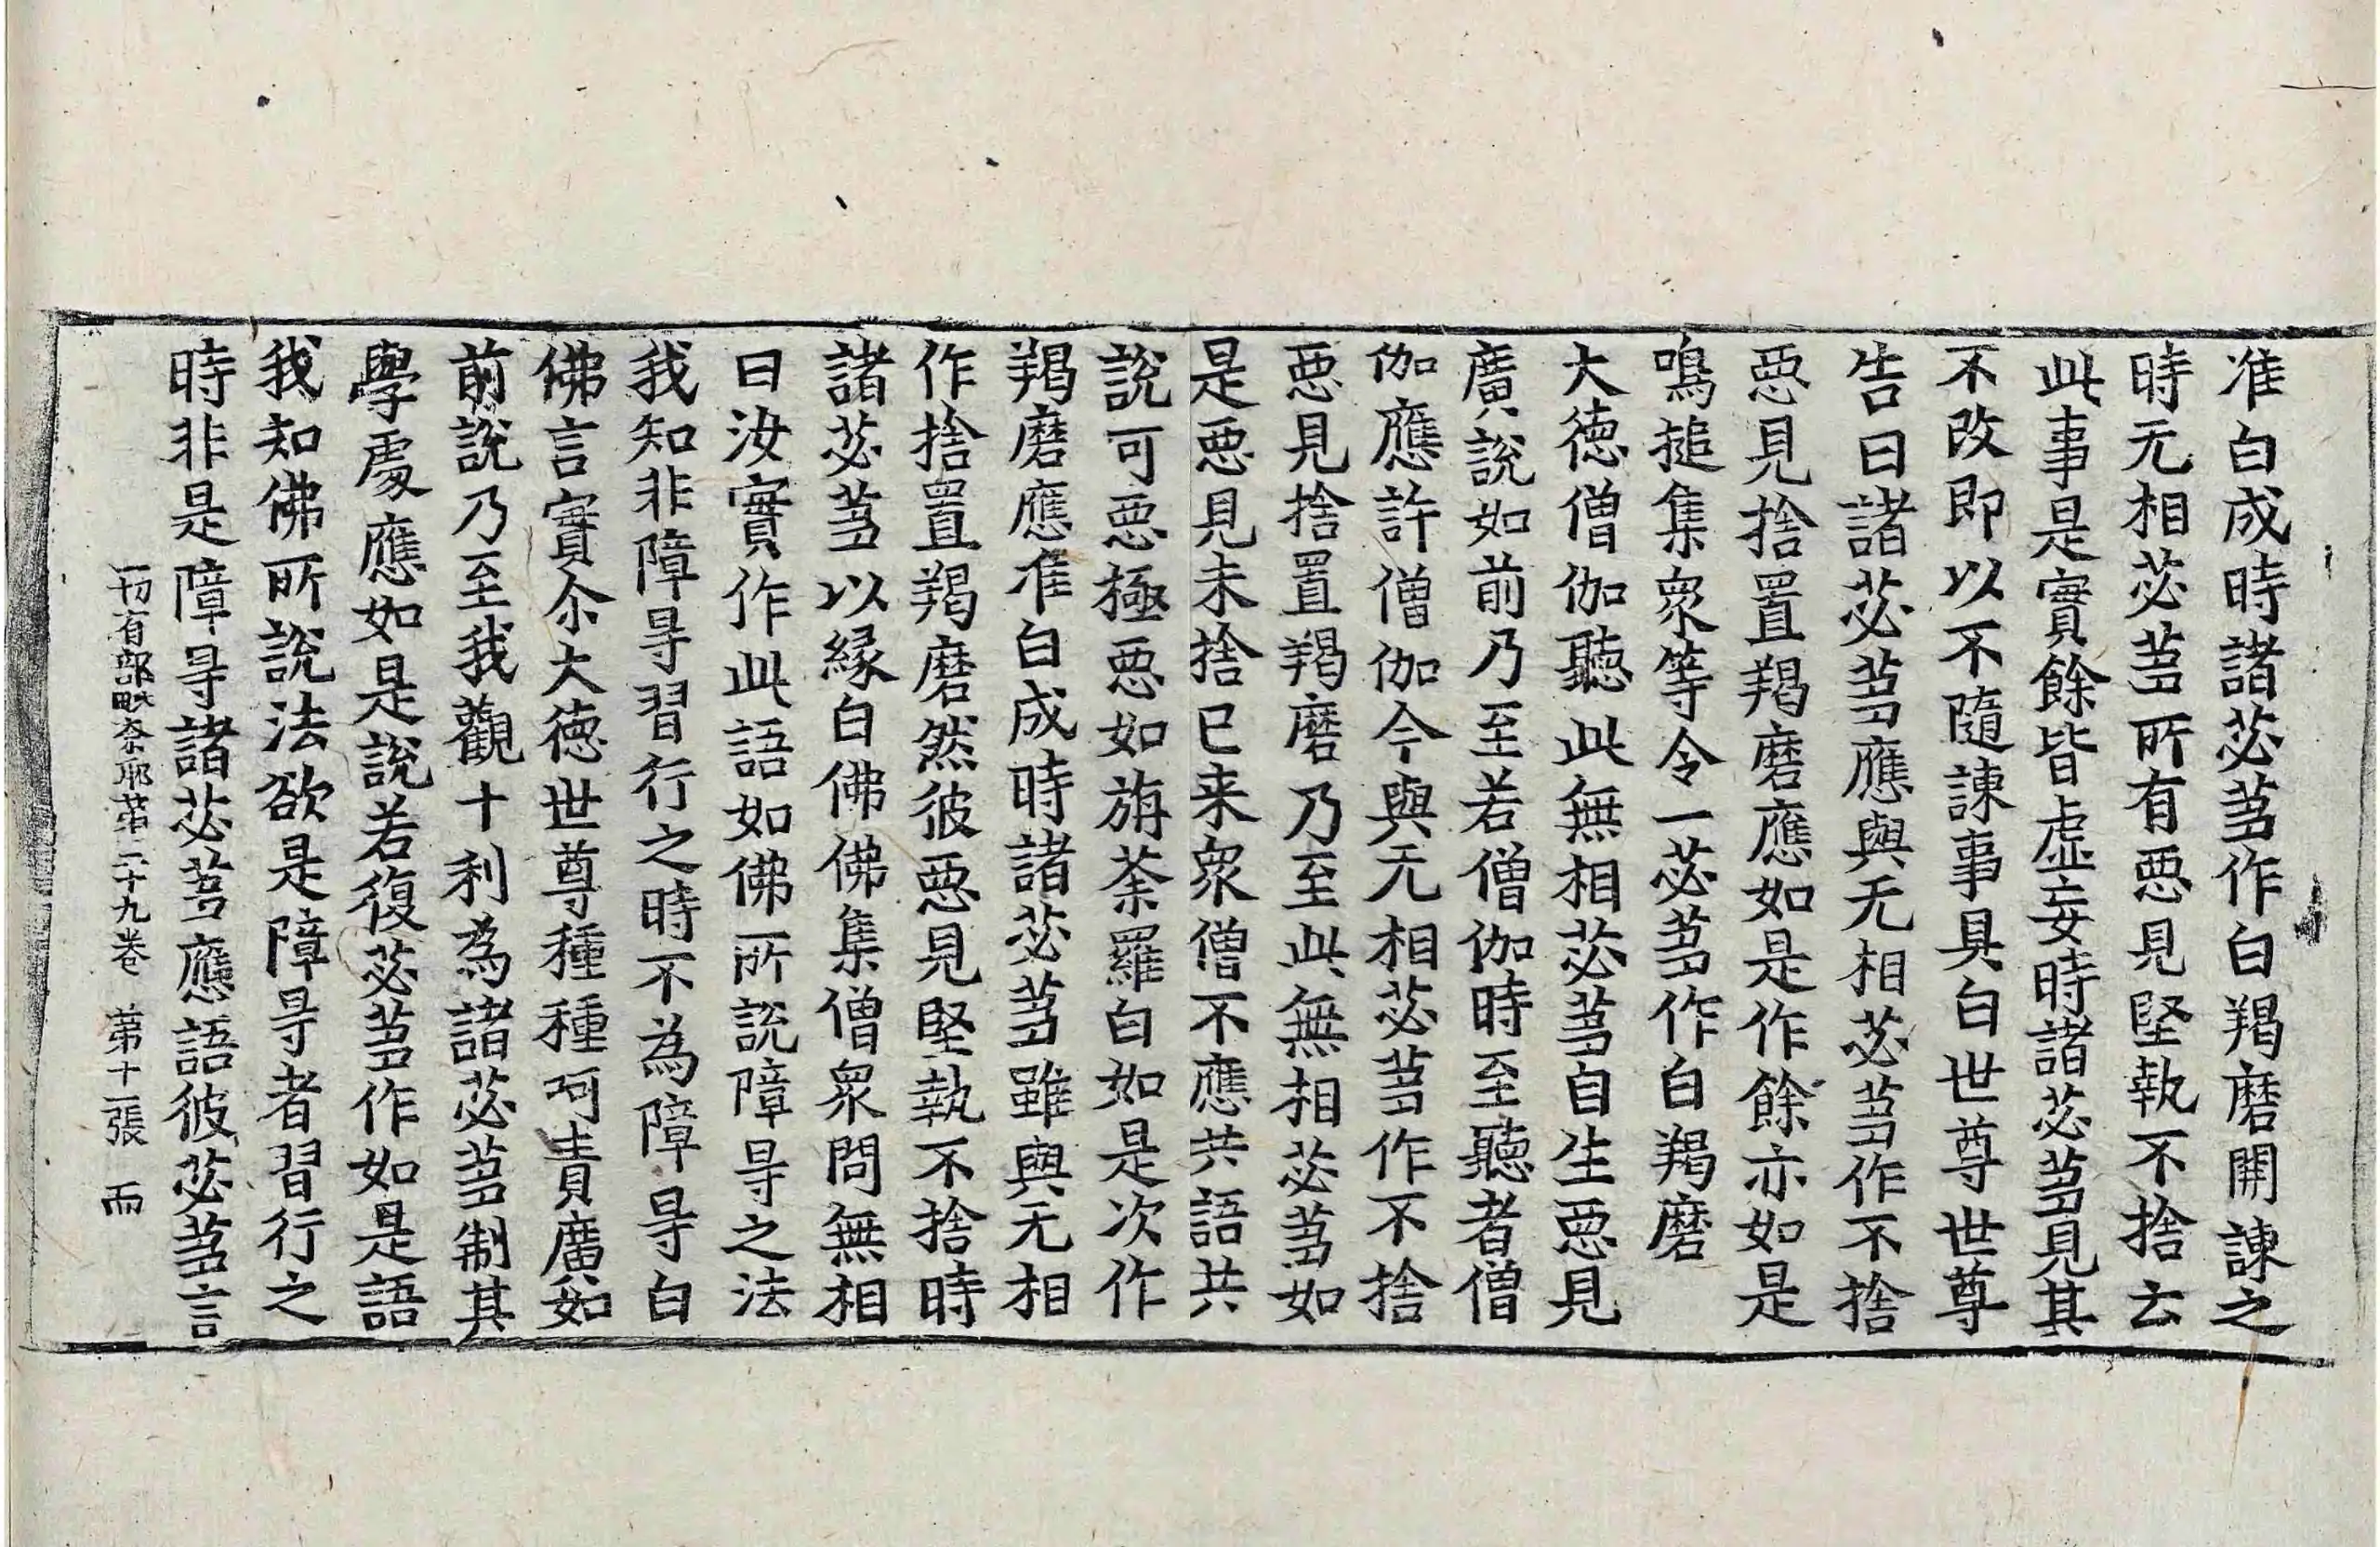 准白成時諸苾芻作白羯磨開諫之
時无相苾芻所有惡見堅執不捨云
此事是實餘皆虛妄時諸苾芻見其
不改即以不隨諫事具白世尊世尊
告曰諸苾芻應與无相苾芻作不捨
惡見捨置羯磨應如是作餘亦如是
鳴搥集衆等令一苾芻作白羯磨
大德僧伽聽此無相苾芻自生惡見
廣說如前乃至若僧伽時至聽者僧
伽應許僧伽今與无相苾芻作不捨
惡見捨置羯磨乃至此無相苾芻如
是惡見未捨已来衆僧不應共語共
說可惡極惡如旃荼羅白如是次作
羯磨應准白成時諸苾芻雖與无相
作捨置羯磨然彼惡見堅執不捨時
諸苾芻以緣白佛佛集僧衆問無相
曰汝實作此語如佛所說障㝵之法
我知非障㝵習行之時不為障㝵白
佛言實尒大德世尊種種呵責廣如
前說乃至我觀十利為諸苾芻制其
學處應如是說若復苾芻作如是語
我知佛所說法欲是障㝵者習行之
時非是障㝵諸苾芻應語彼苾芻言
一切有部毗奈耶第三十九卷 第十二張 而